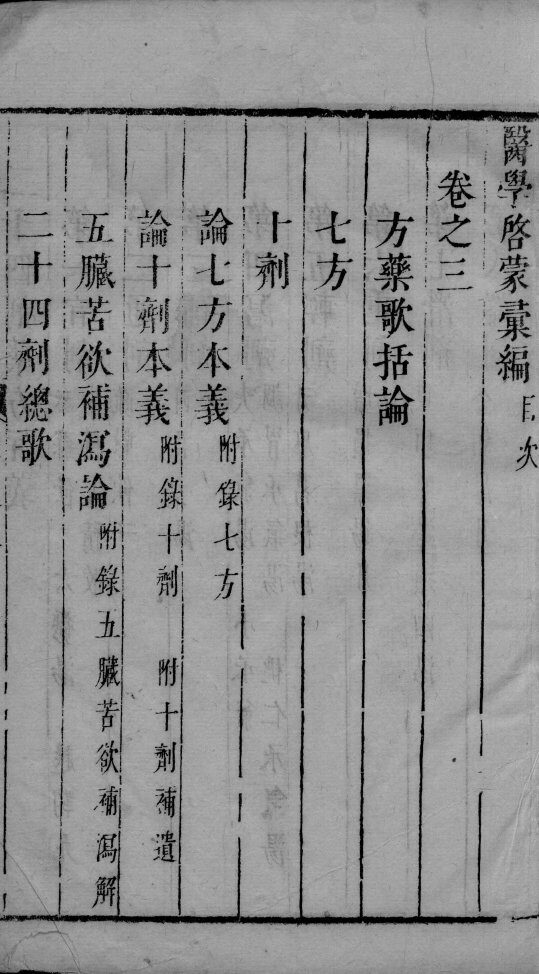 醫學啓蒙彙編 目次
卷之三
方藥歌括論
七方
十劑
論七方本義 附錄七方
論十劑本義 附錄十劑 附十劑補遺
五臟苦欲補瀉論 附錄五臟苦欲補瀉解
二十四劑總歌